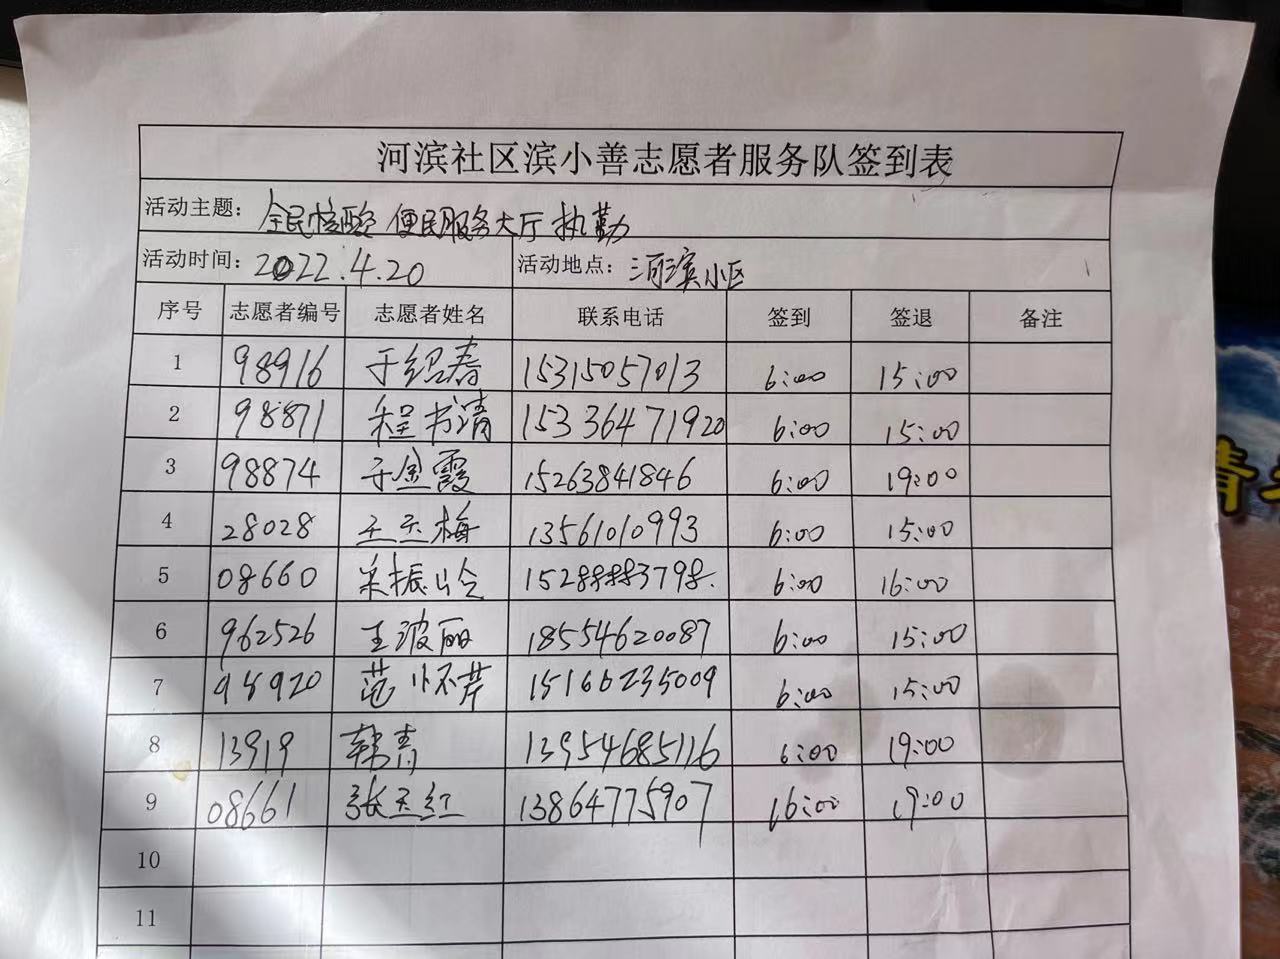 河滨社区滨小善志愿者服务队签到表
活动主题: 全民核酸 便民服务大厅 执勤
活动时间: 2022.4.20 活动地点: 河滨小区
序号 志愿者编号 志愿者姓名 联系电话 签到 签退 备注
1 98916 于绍春 15315057013 6:00 15:00
2 98871 程书清 15336471920 6:00 15:00
3 98874 于金霞 15263841846 6:00 19:00
4 28028 王玉梅 13561010993 6:00 15:00
5 08660 6:00 16:00
6 962526 王波丽 18554620087 6:00 15:00
7 98920 范怀芹 15166235009 6:00 15:00
8 13919 韩青 13954685116 6:00 19:00
9 08661 张玉红 13864775907 16:00 19:00
10
11
青